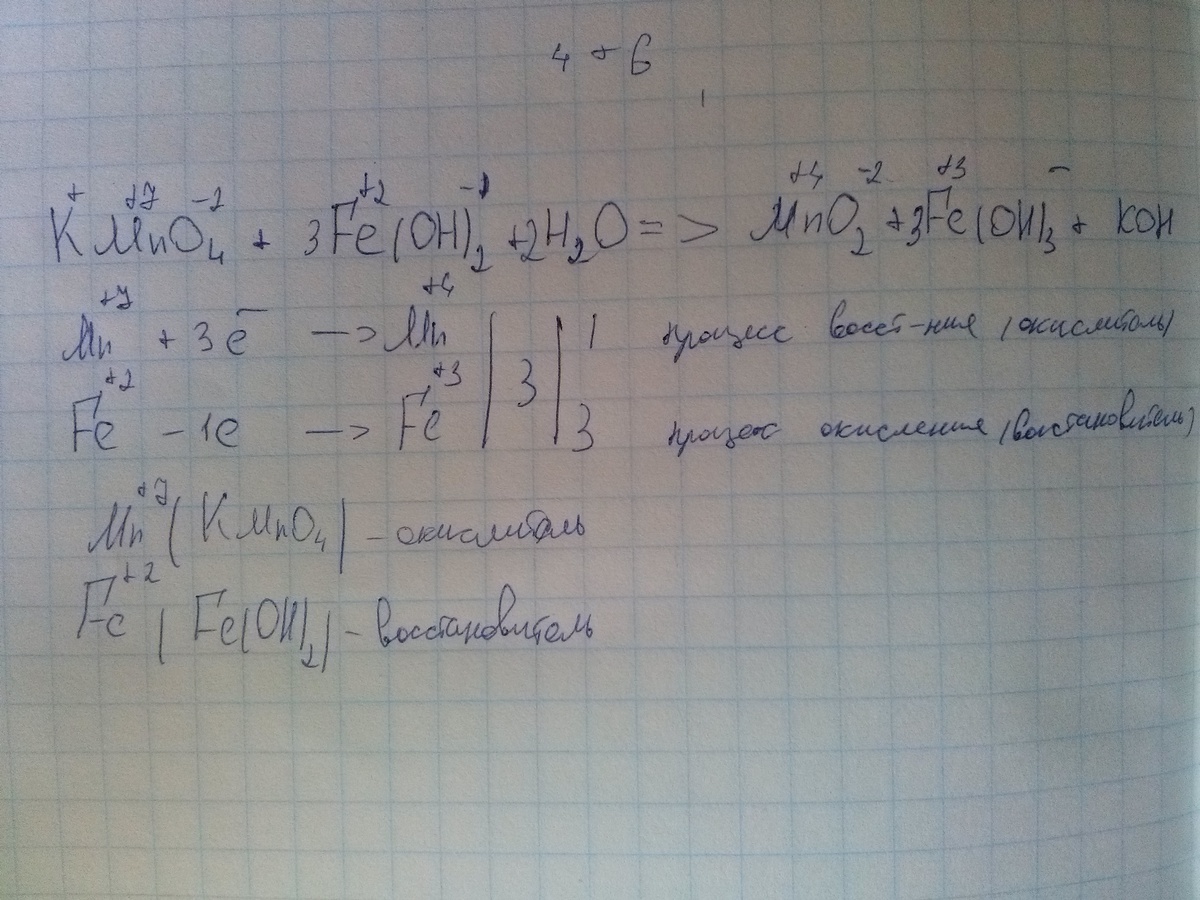 4 + 6
K⁺Mn⁺⁷O₄⁻² + 3Fe⁺²(OH)₂⁻¹ + 2H₂O => Mn⁺⁴O₂⁻² + 3Fe⁺³(OH)₃⁻ + KOH
Mn⁺⁷ + 3e⁻ —> Mn⁺⁴ | 3 | 1 процесс восст-ния (окислитель)
Fe⁺² - 1e —> Fe⁺³ | | 3 процесс окисления (восстановитель)
Mn⁺⁷ (KMnO₄) - окислитель
Fe⁺² (Fe(OH)₂) - восстановитель